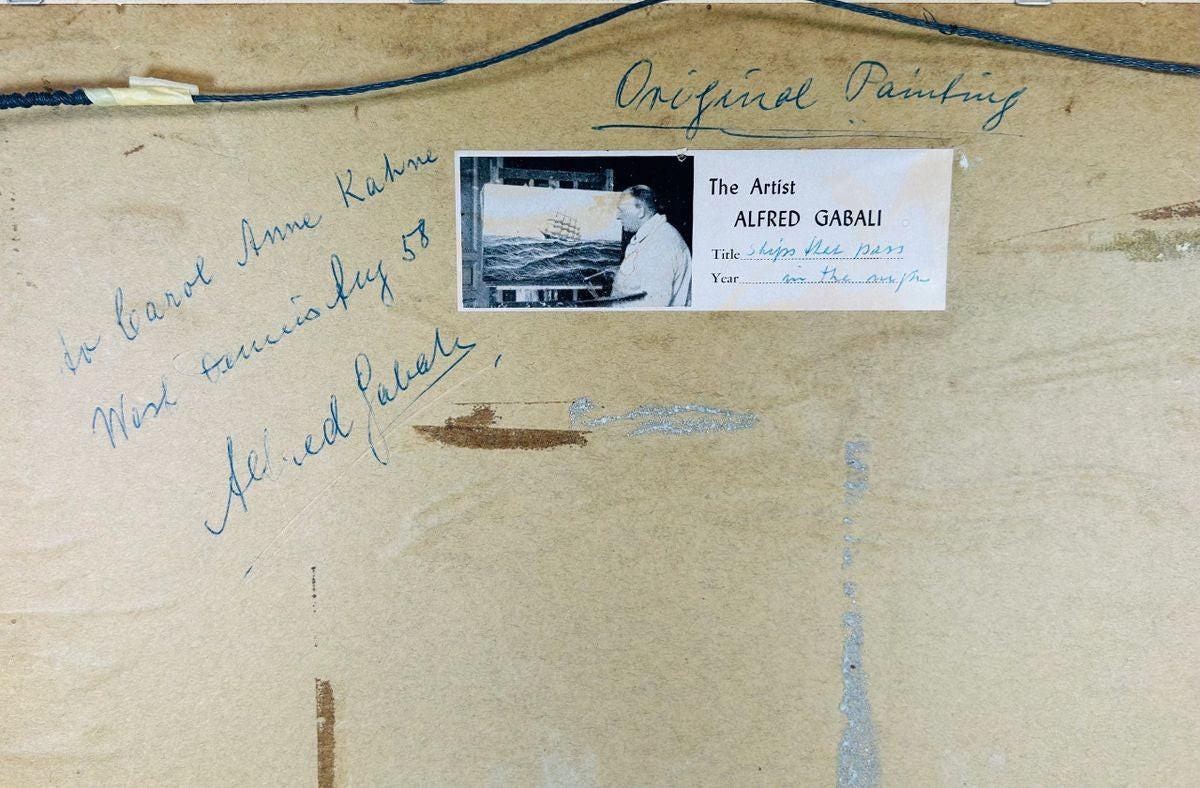 Original Painting
The Artist
ALFRED GABALI
Title Ships that pass
Year in the night
to Carol Anne Kahne
West Dennis Aug 58
Alfred Gabali